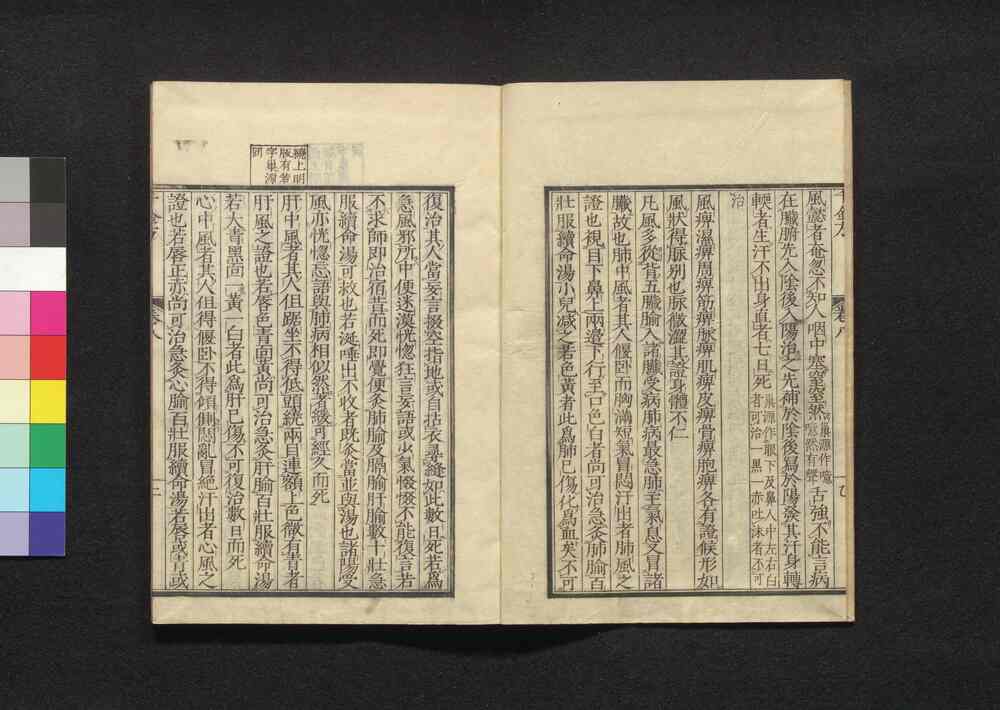 風懿者奄忽不知人咽中塞窒窒然巢源作噫噫然有聲舌強不能言病
在臟腑先入陰後入陽治之先補於陰後寫於陽發其汗身轉
軟者生汗不出身直者七日死巢源作眼下及鼻人中左右白者可治一黑一赤吐沫者不可
治
風痺濕痺周痺筋痺脈痺肌痺皮痺骨痺胞痺各有證候形如
風狀得脈別也脈微澀其證身體不仁
凡風多從背五臟腧入諸臟受病肺病最急肺主氣息又冒諸
臟故也肺中風者其人偃卧而胸滿短氣冒悶汗出者肺風之
證也視目下鼻上兩邊下行至口色白者尚可治急灸肺腧百
壯服續命湯小兒減之若色黃者此為肺已傷化為血矣不可
復治其人當妄言掇空指地或自拈衣尋縫如此數日死若為
急風邪所中便迷漠恍惚狂言妄語或少氣惙惙不能復言若
不求師即治宿昔而死即覺便灸肺腧及膈腧肝腧數十壯急
服續命湯可救也若涎唾出不收者既灸當並與湯也諸陽受
風亦恍惚妄語與肺病相似然著緩可經久而死
肝中風者其人但踞坐不得低頭繞兩目連額上色微有青者
肝風之證也若唇色青面黃尚可治急灸肝腧百壯服續命湯
若大青黑面一黃一白者此為肝已傷不可復治數日而死
心中風者其人但得偃卧不得傾側悶亂冒絕汗出者心風之
證也若唇正赤尚可治急灸心腧百壯服續命湯若唇或青或
繞上明
版有若
字巢源
同
卷八
卷八